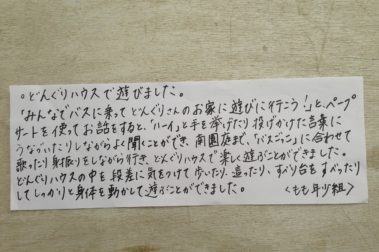 。どんぐりハウスで遊びました。
「みんなでバスに乗ってどんぐりさんのお家に遊びに行こう!」と、ペープ
サートを使ってお話をすると、「ハーイ」と手を挙げたり投げかけた言葉に
うなづいたりしながらよく聞くことができ、南園庭まで、「バスごっこ」に合わせて
歌ったり身振りをしながら行き、どんぐりハウスで楽しく遊ぶことができました。
どんぐりハウスの中を段差に気をつけて歩いたり、走ったり、すべり台をすべったり
してしっかりと身体を動かして遊ぶことができました。
<もも年少組>